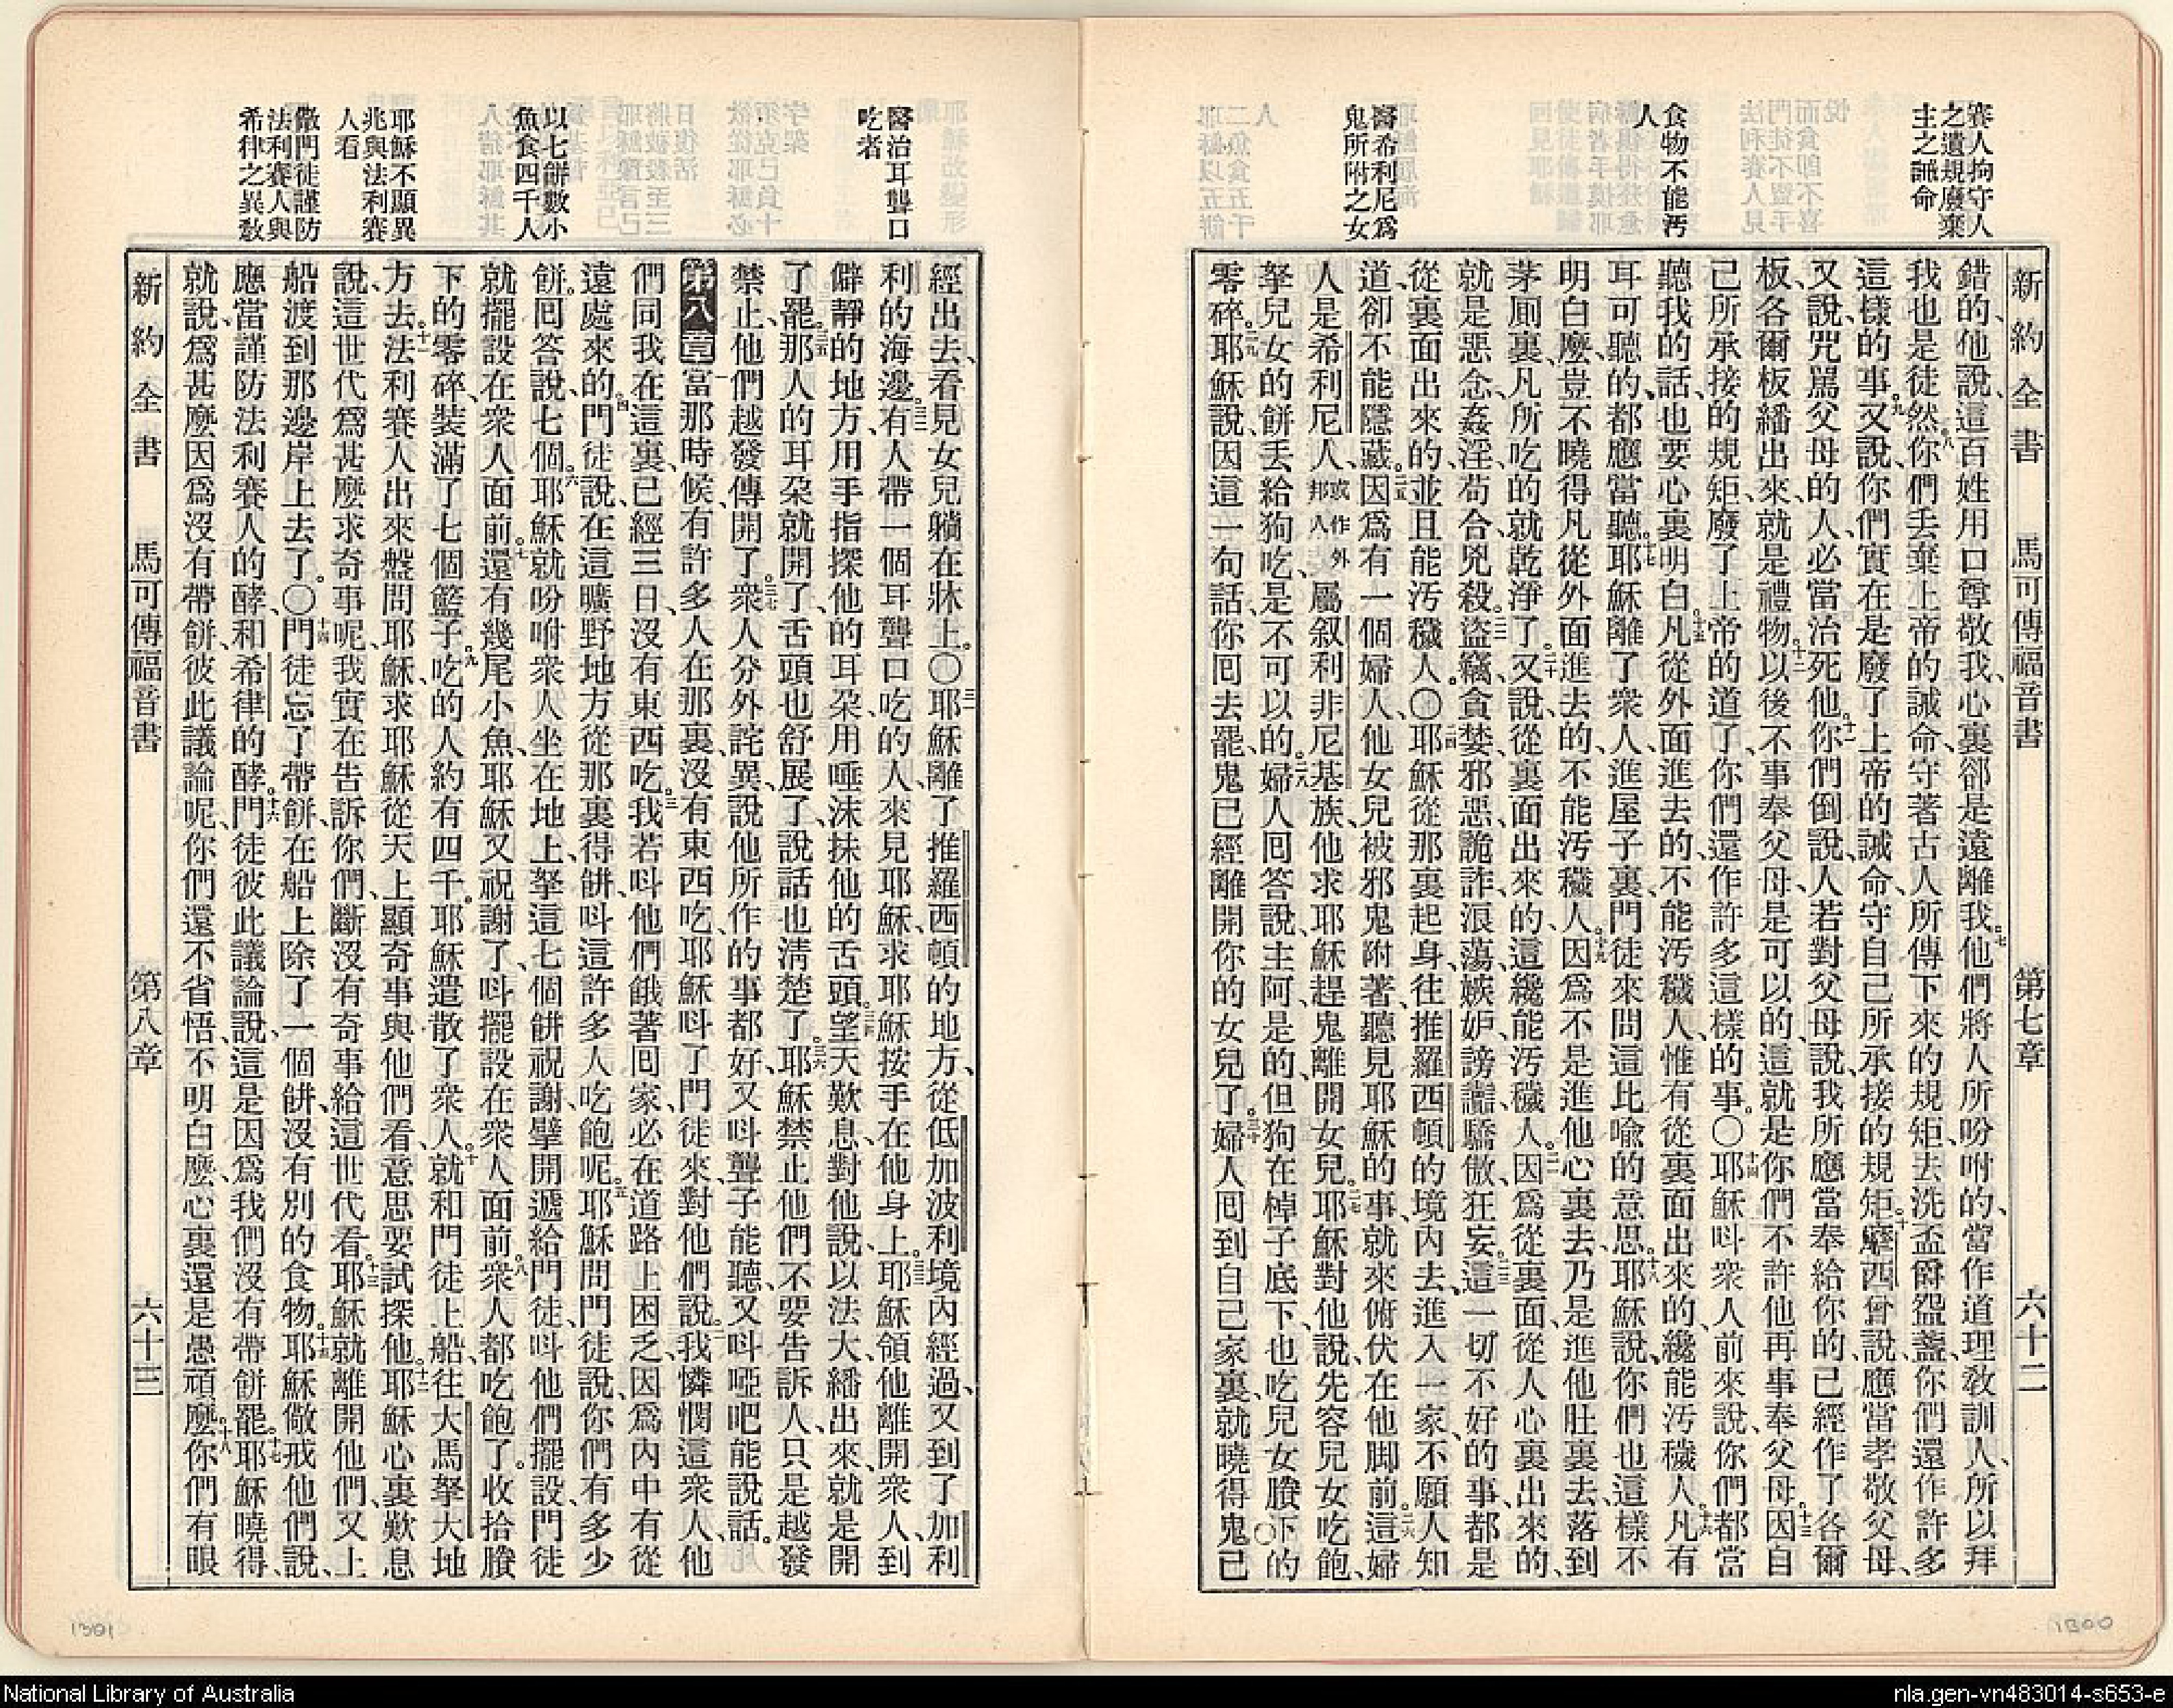 新約全書 馬可傳福音書 第七章 六十二
賽人拘守人
之遺規廢棄
主之誡命
食物不能汚
人
醫希利尼爲
鬼所附之女
錯的、他說、這百姓用口尊敬我、心裏卻是遠離我。七他們將人所吩咐的、當作道理教訓人、所以拜
我也是徒然。八你們丟棄上帝的誡命、守著古人所傳下來的規矩、去洗盃、爵、盌、盞、你們還作許多
這樣的事。九又說、你們實在是廢了上帝的誡命、守自己所承接的規矩。十摩西曾說、應當孝敬父母、
又說、咒罵父母的人、必當治死他。十一你們倒說、人若對父母說、我所應當奉給你的、已經作了各爾
板、各爾板繙出來、就是禮物。十二以後不事奉父母、是可以的、這就是你們不許他再事奉父母。十三因自
己所承接的規矩、廢了上帝的道了、你們還作許多這樣的事。〇十四耶穌呌衆人前來說、你們都當
聽我的話、也要心裏明白。十五凡從外面進去的、不能汚穢人、惟有從裏面出來的、纔能汚穢人。十六凡有
耳可聽的、都應當聽。十七耶穌離了衆人、進屋子裏、門徒來問這比喻的意思。十八耶穌說、你們也這樣不
明白麼、豈不曉得凡從外面進去的、不能汚穢人。十九因爲不是進他心裏去、乃是進他肚裏去、落到
茅厠裏、凡所吃的就乾淨了。二十又說、從裏面出來的、這纔能汚穢人。二一因爲從裏面、從人心裏出來的、
就是惡念、姦淫、苟合、兇殺。二二盜竊、貪婪、邪惡、詭詐、浪蕩、嫉妒、謗讟、驕傲、狂妄。二三這一切不好的事、都是
從裏面出來的、並且能汚穢人〇二四耶穌從那裏起身、往推羅西頓的境內去、進入一家、不願人知
道、卻不能隱藏。二五因爲有一個婦人、他女兒被邪鬼附著、聽見耶穌的事、就來俯伏在他脚前。二六這婦
人是希利尼人、或作外邦人屬叙利非尼基族、他求耶穌趕鬼離開女兒。二七耶穌對他說、先容兒女吃飽、
拏兒女的餅丟給狗吃、是不可以的。二八婦人囘答說、主阿、是的、但狗在棹子底下、也吃兒女賸下的
零碎。二九耶穌說、因這一句話、你囘去罷、鬼已經離開你的女兒了。三十婦人囘到自己家裏、就曉得鬼已
醫治耳聾口
吃者
以七餅數小
魚食四千人
耶穌不顯異
兆與法利賽
人看
儆門徒謹防
法利賽人與
希律之異敎
經出去、看見女兒躺在牀上。〇三一耶穌離了推羅西頓的地方、從低加波利境內經過、又到了加利
利的海邊。三二有人帶一個耳聾口吃的人、來見耶穌、求耶穌按手在他身上。三三耶穌領他離開衆人、到
僻靜的地方、用手指探他的耳朶、用唾沫抹他的舌頭。三四望天歎息、對他說、以法大、繙出來、就是開
了罷。三五那人的耳朶就開了、舌頭也舒展了、說話也淸楚了。三六耶穌禁止他們不要告訴人、只是越發
禁止、他們越發傳開了。三七衆人分外詫異、說他所作的事都好、又呌聾子能聽、又呌啞吧能說話。
第八章 一當那時候、有許多人在那裏、沒有東西吃、耶穌呌了門徒來、對他們說。二我憐憫這衆人、他
們同我在這裏、已經三日、沒有東西吃。三我若呌他們餓著囘家、必在道路上困乏、因爲內中有從
遠處來的。四門徒說、在這曠野地方、從那裏得餅、呌這許多人吃飽呢。五耶穌問門徒說、你們有多少
餅。囘答說、七個。六耶穌就吩咐衆人坐在地上、拏這七個餅祝謝、擘開遞給門徒、呌他們擺設、門徒
就擺設在衆人面前。七還有幾尾小魚、耶穌又祝謝了、呌擺設在衆人面前。八衆人都吃飽了。收拾賸
下的零碎、裝滿了七個籃子。九吃的人約有四千。耶穌遣散了衆人。十就和門徒上船、往大馬拏大地
方去。十一法利賽人出來盤問耶穌、求耶穌從天上顯奇事與他們看、意思要試探他。十二耶穌心裏歎息
說、這世代爲甚麼求奇事呢、我實在告訴你們、斷沒有奇事給這世代看。十三耶穌就離開他們、又上
船渡到那邊岸上去了。〇十四門徒忘了帶餅、在船上除了一個餅、沒有別的食物。十五耶穌儆戒他們說、
應當謹防法利賽人的酵、和希律的酵。十六門徒彼此議論說、這是因爲我們沒有帶餅罷。十七耶穌曉得、
就說、爲甚麼因爲沒有帶餅、彼此議論呢、你們還不省悟、不明白麼、心裏還是愚頑麼。十八你們有眼
新約全書 馬可傳福音書 第八章 六十三
1301
1300
National Library of Australia
nla.gen-vn483014-s653-e